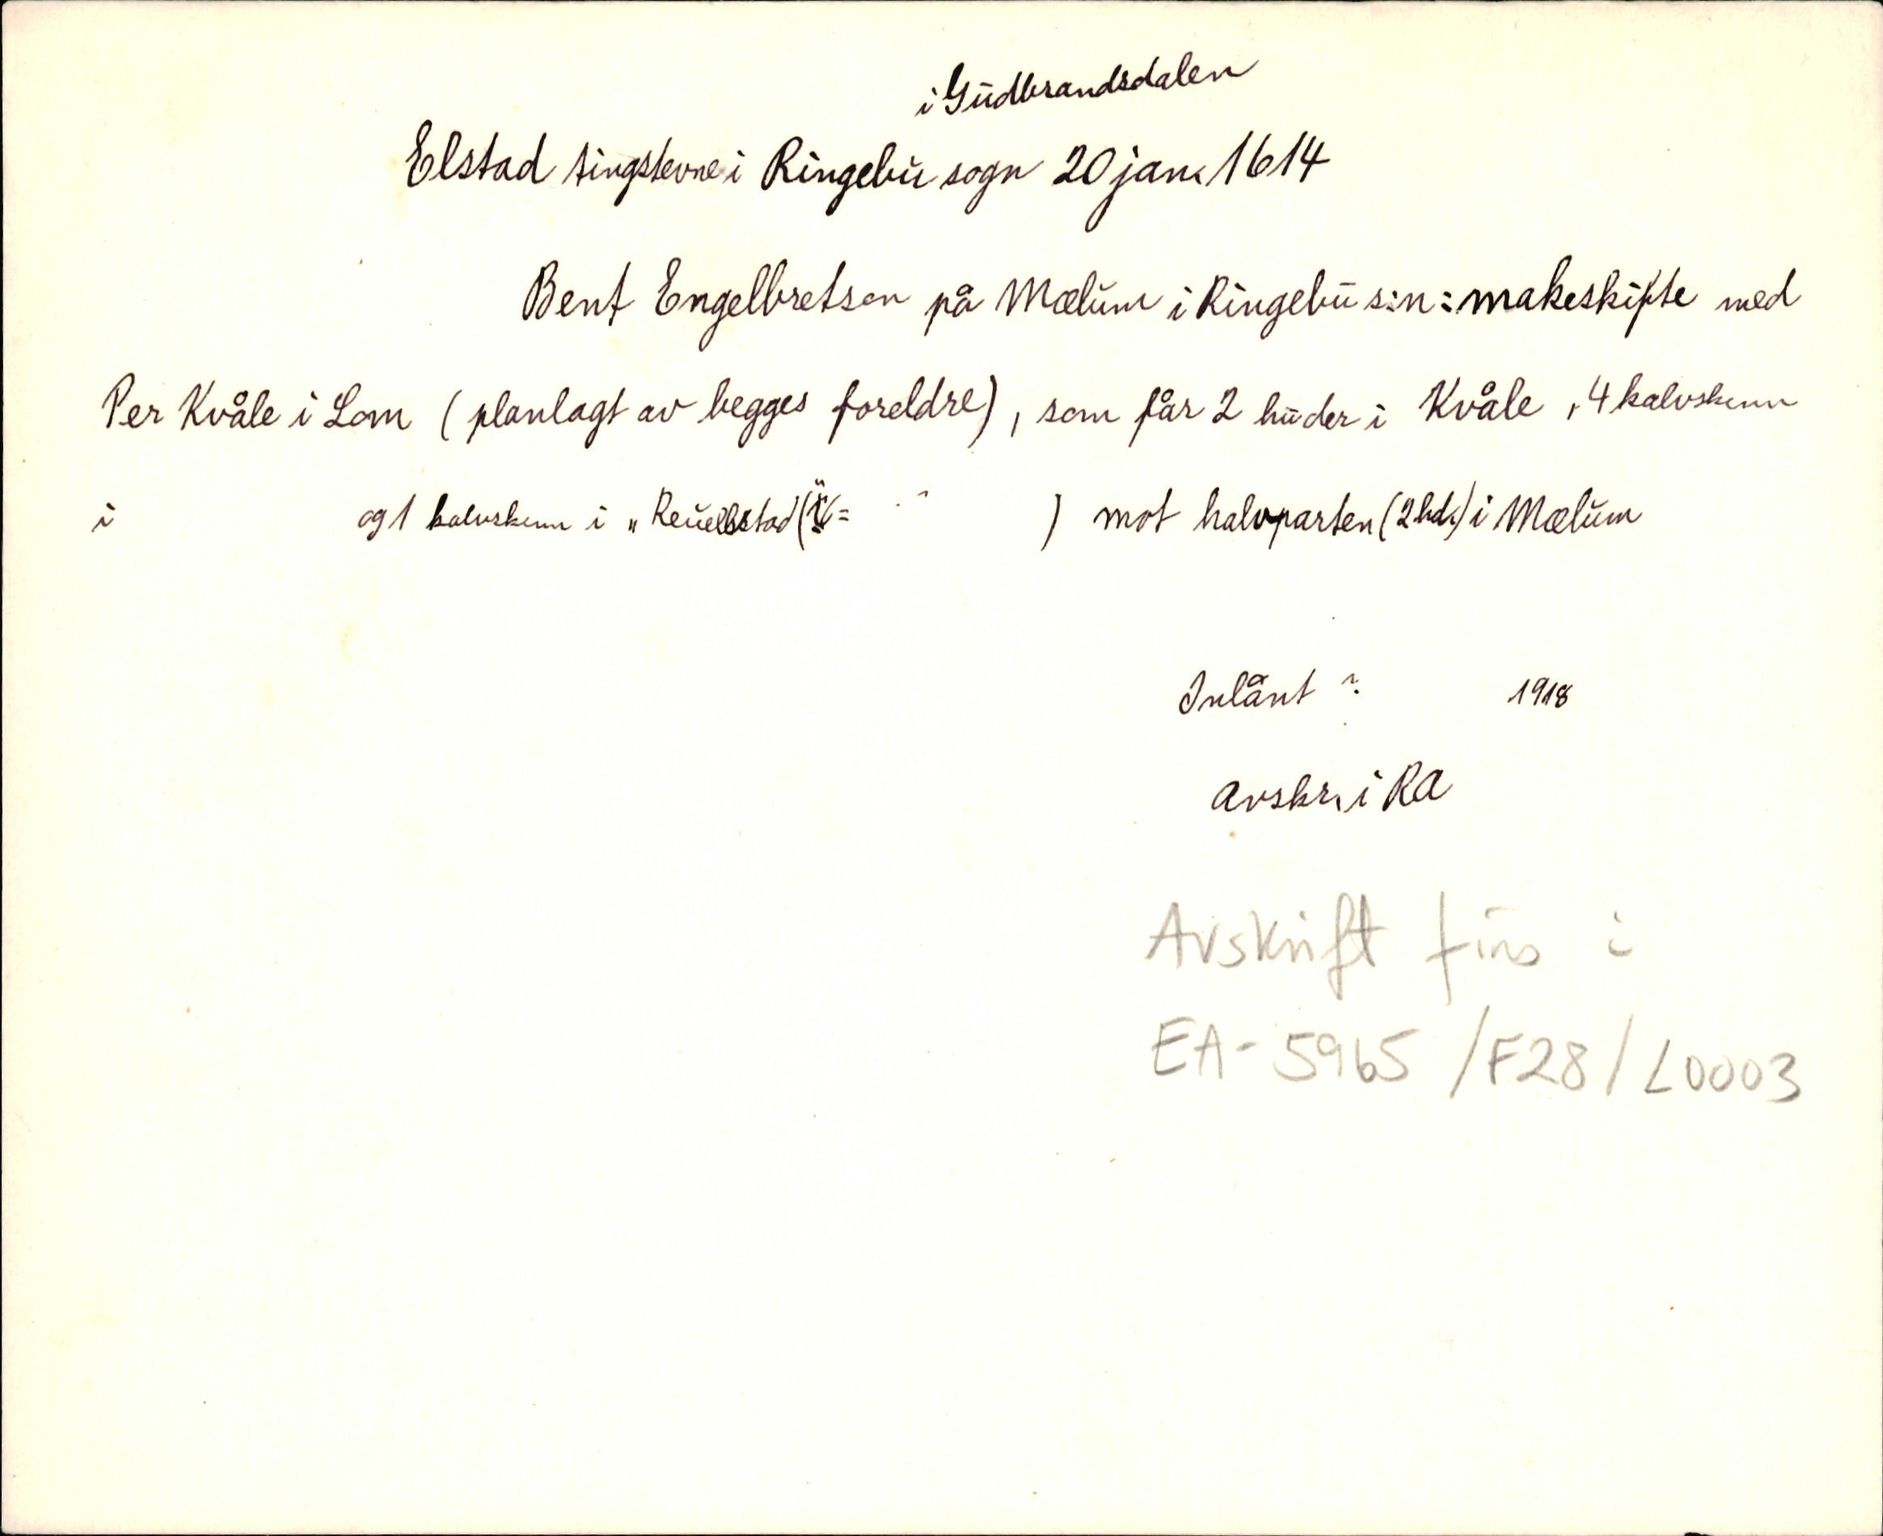 i Gudbrandsdalen
Elstad tingstevne i Ringebu sogn 20 jan. 1614
Bent Engelbretsen på Mælum i Ringebu s:n: makeskifte med
Per Kvåle i Lom (planlagt av begges foreldre), som får 2 huder i Kvåle, 4 kalvskinn
i og 1 kalvskinn i „ ( = ) mot halvparten (2 hd.) i Mælum
Inlånt ? 1918
Avskr. i RA
Avskrift fins i
EA-5965 /F28/L0003